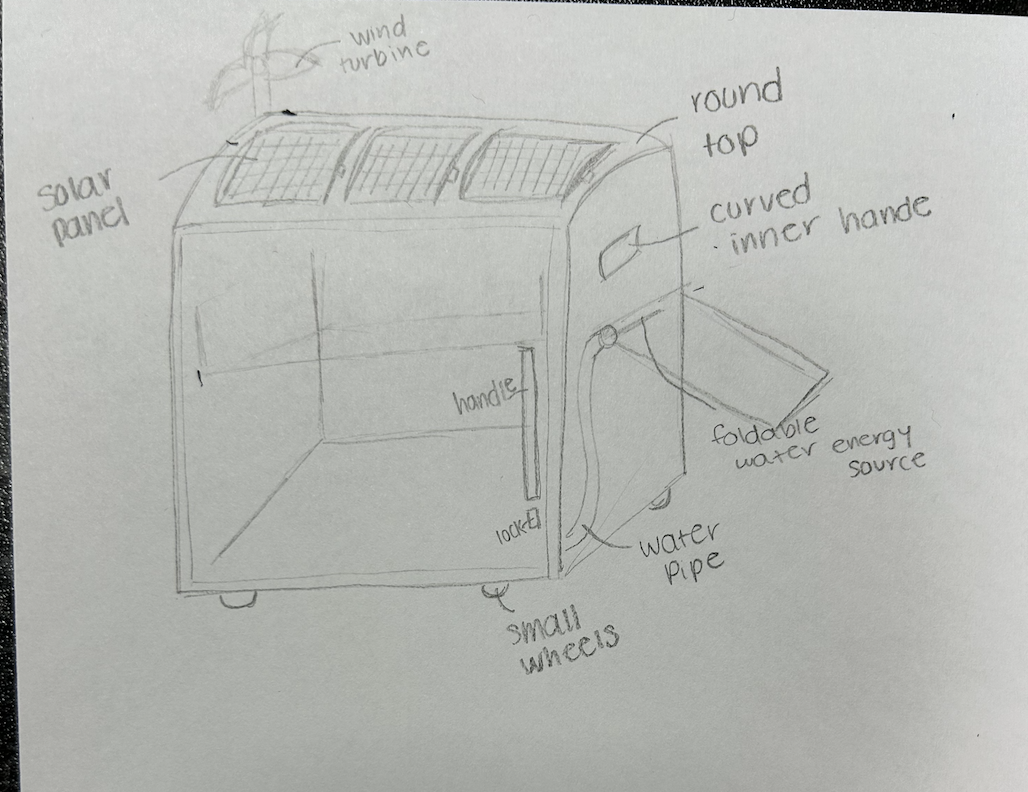 wind
turbine
round
top
solar
panel
curved
inner hande
handle
foldable
water energy
source
lock
water
pipe
small
wheels